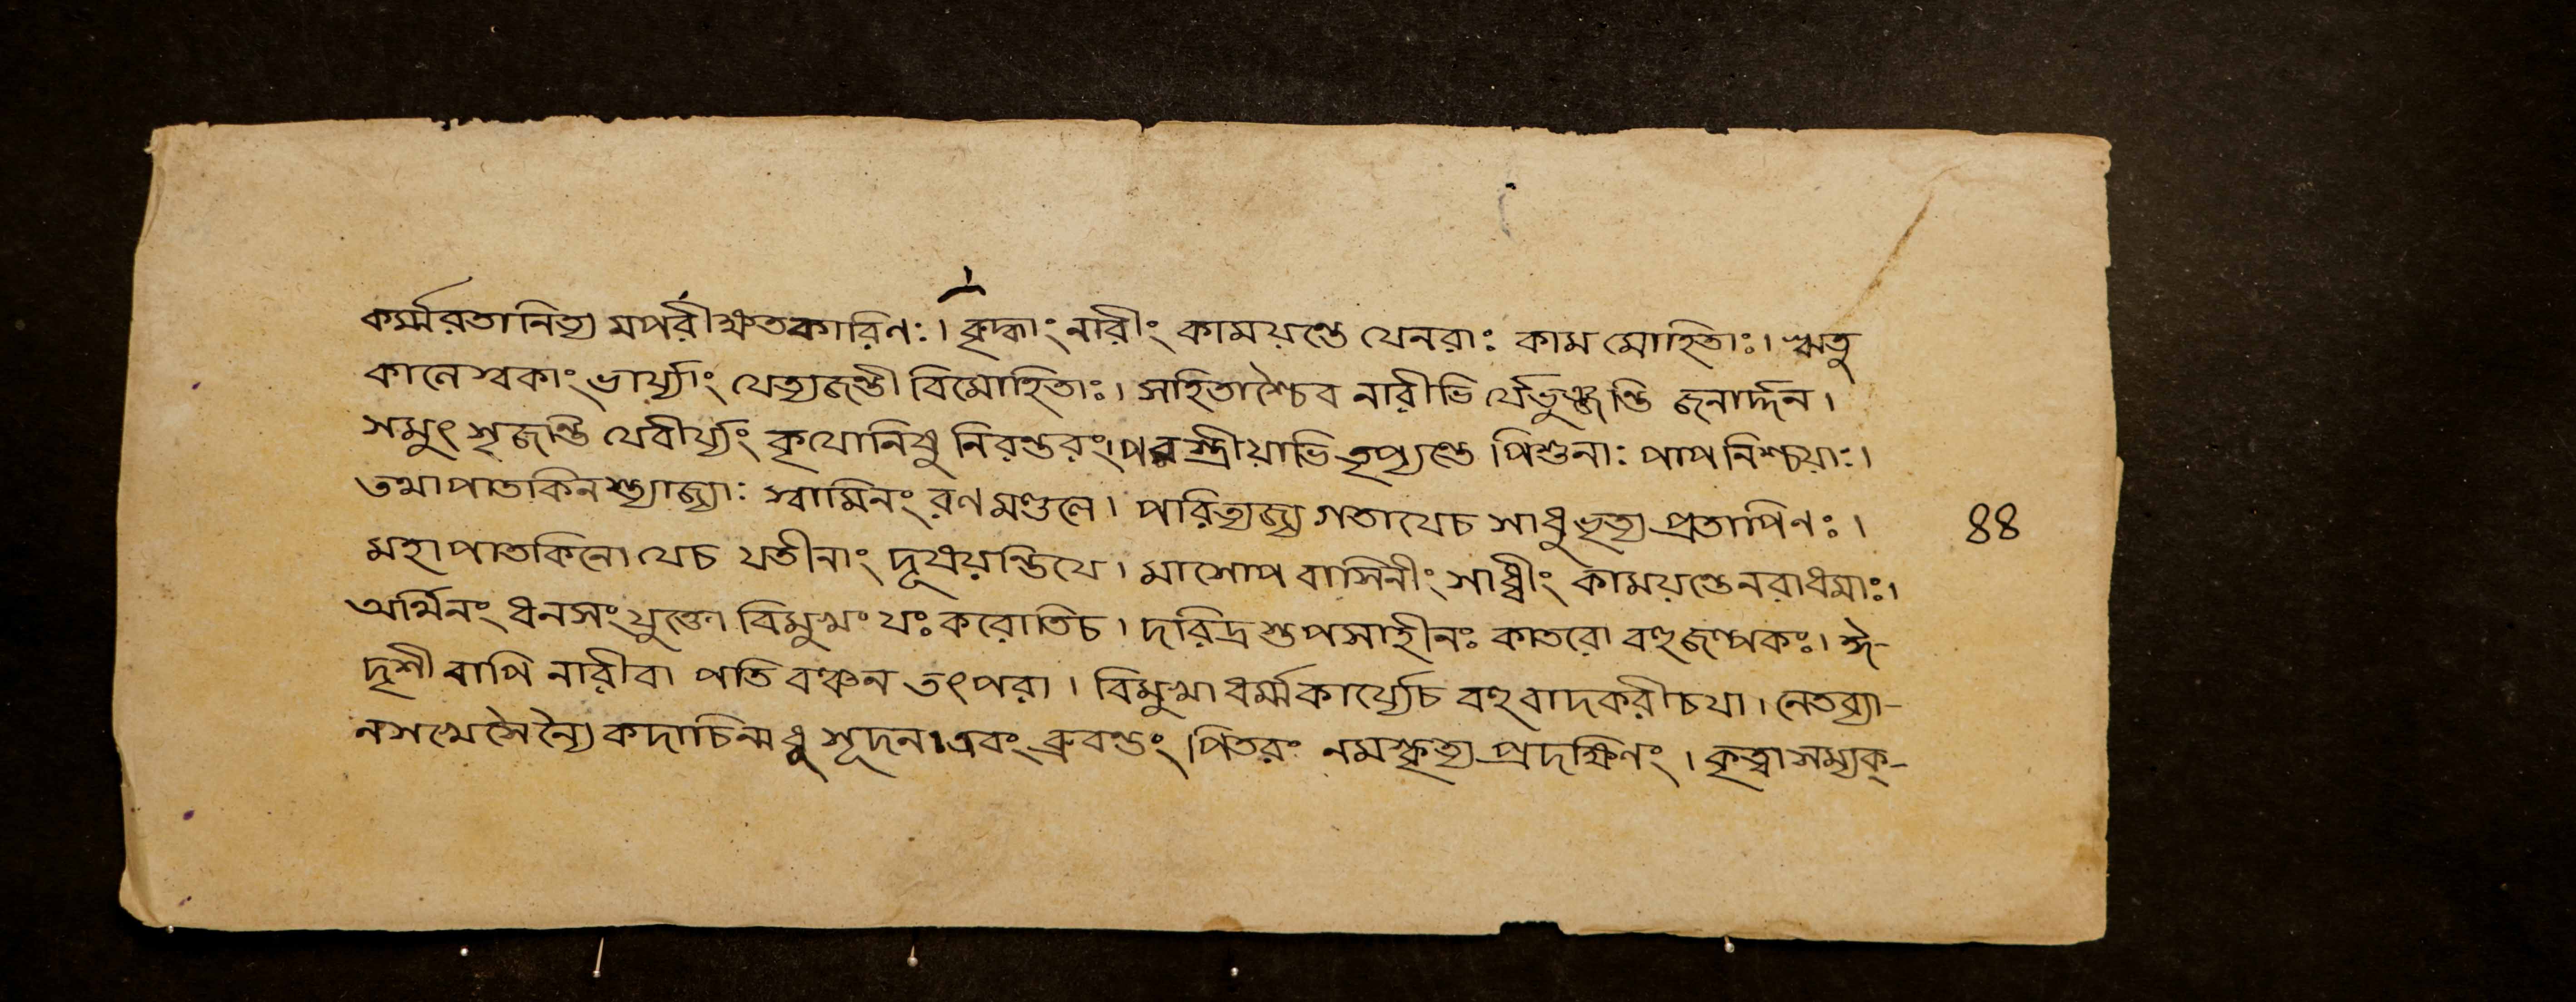 কর্ম্মরতানিত্য মপরীক্ষতকারিণঃ। বৃদ্ধাং নারীং কাময়ন্তে যেনরাঃ কাম মোহিতাঃ। ঋতু
কালেস্বকাং ভার্য্যাং যেত্যজন্তী বিমোহিতাঃ। সাহিতাশ্চৈব নারীভি র্যেভুঞ্জন্তি জনার্দ্দন।
সমুৎ সৃজন্তি যেবীর্য্যং কুযোনিষু নিরন্তরং। পরস্ত্রীয়াভি তৃপ্যন্তে পিশুনাঃ পাপ নিশ্চয়াঃ।
তথাপাতকিনস্ত্যাজ্যাঃ স্বামিনং রণ মণ্ডলে। পরিত্যজ্য গতাযেচ সাধুভৃত্য প্রতাপিণঃ।
মহাপাতকিনো যেচ যতীনাং দূষয়ন্তিযে। মাসোপ বাসিনীং সাধ্বীং কাময়ন্তেনরাধমাঃ।
অর্থিনং ধনসংযুক্তো বিমুখং যঃ করোতিচ। দরিদ্র স্তপসাহীনঃ কাতরো বহুজল্পকঃ। ঈ-
দৃশী বাপি নারীবা পতি বঞ্চন তৎপরা। বিমুখা ধর্ম্মকার্য্যেচ বহু বাদকরীচযা। নেতব্যা-
নসখেসৈন্যৈ কদাচিন্মধুসূদন। এবং ব্রুবন্তং পিতরং নমস্কৃত্য প্রদক্ষিণং। কৃত্বাসম্যক্-
৪৪